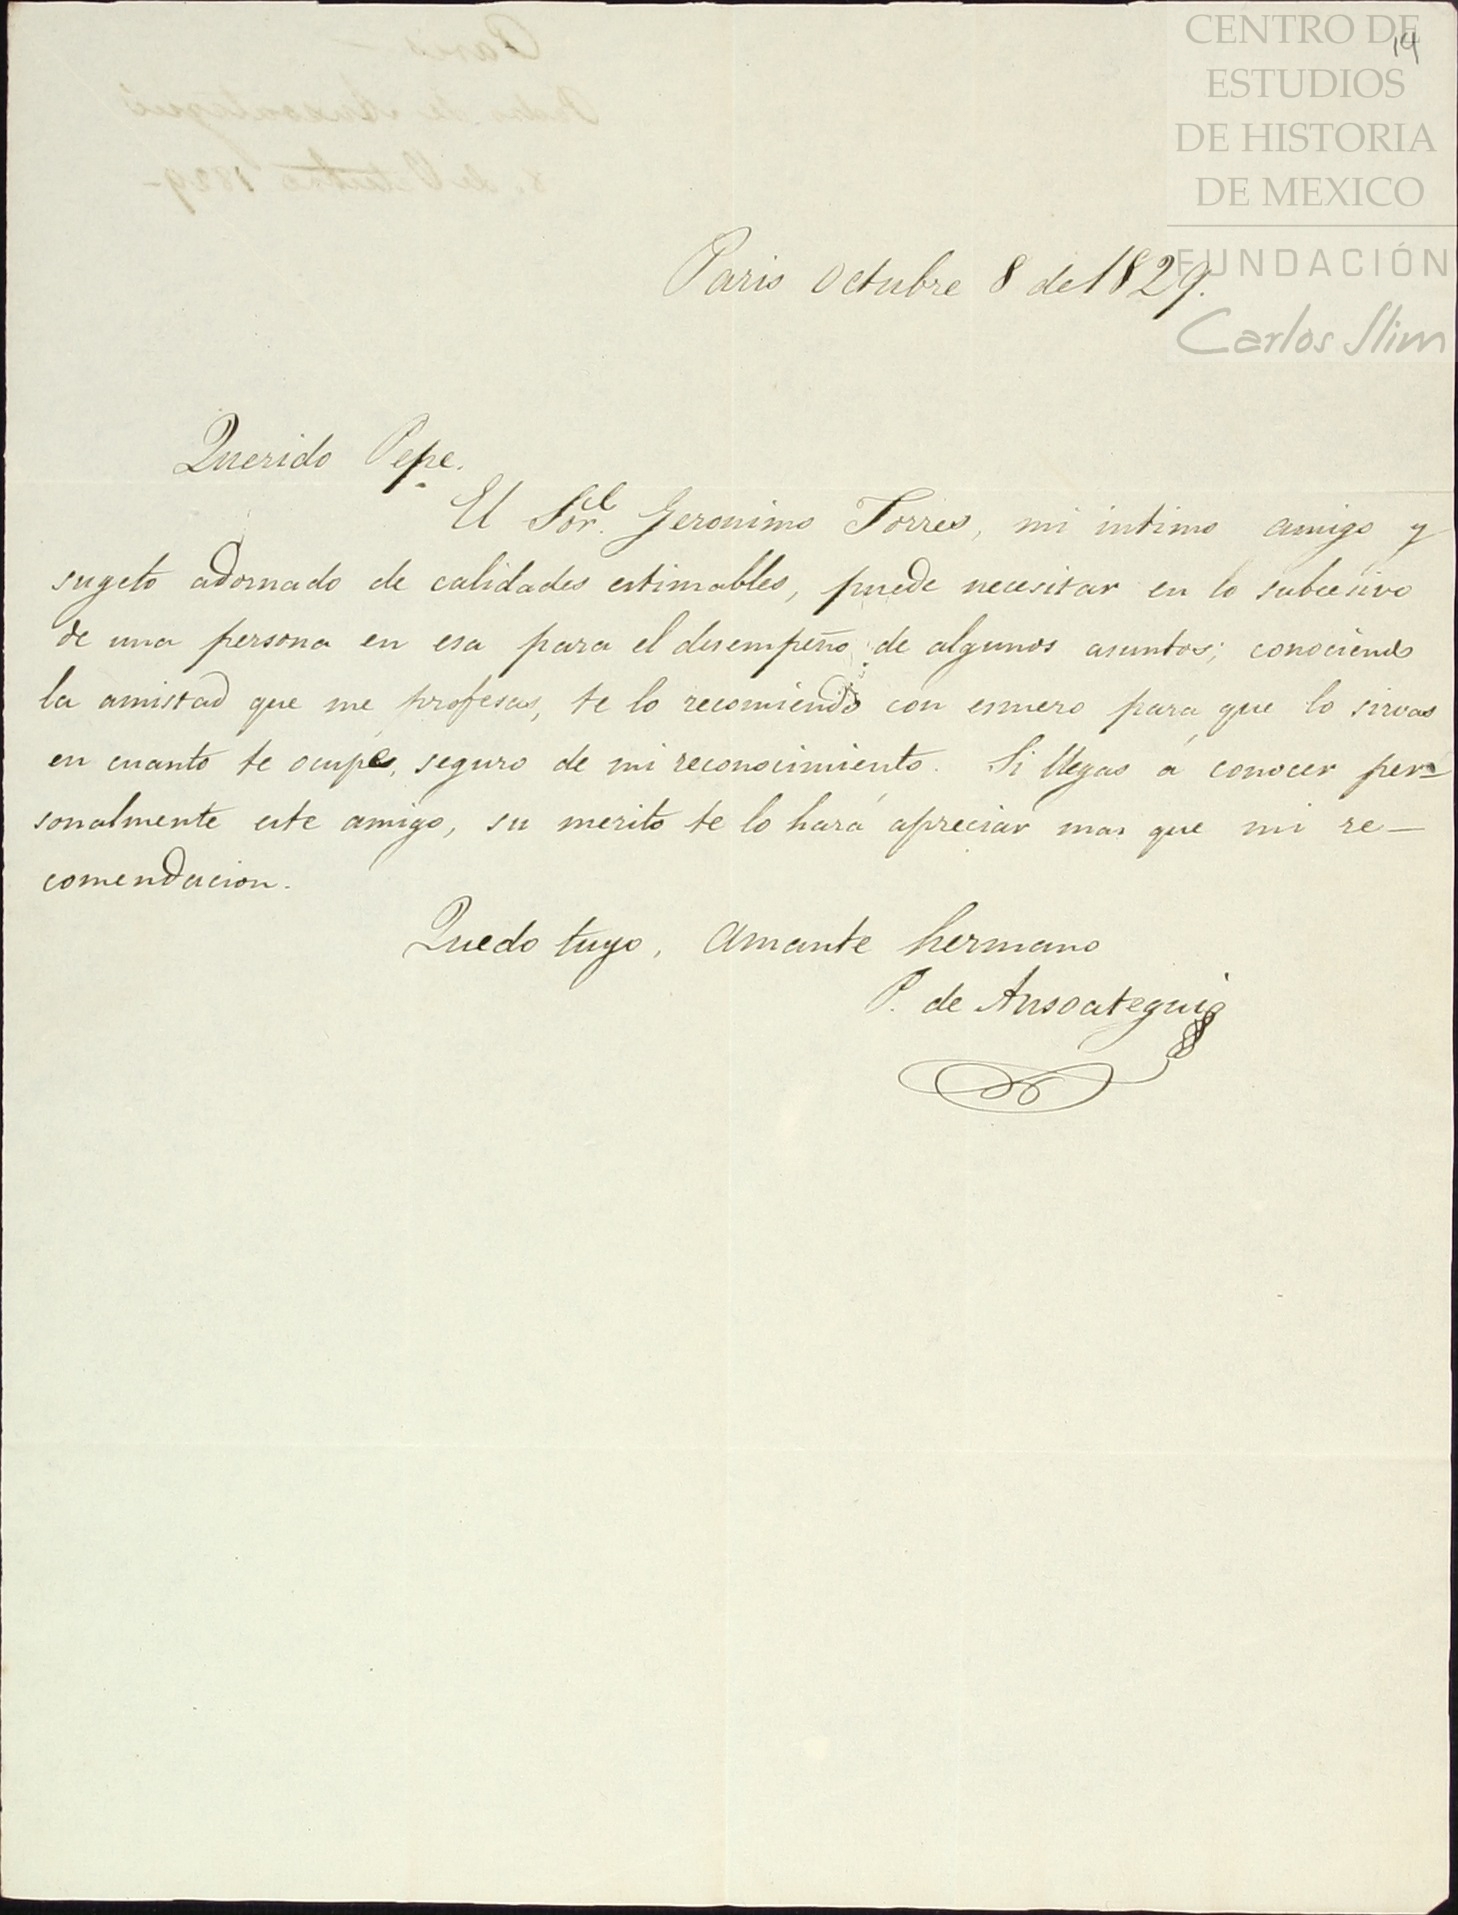 CENTRO DE
ESTUDIOS
DE HISTORIA
DE MEXICO
FUNDACIÓN
Carlos Slim
14
Paris Octubre 8 de 1829.
Querido Pepe.
El Sor. Geronimo Torres, mi intimo amigo y
sugeto adornado de calidades estimables, puede necesitar en lo subcesivo
de una persona en esa para el desempeño de algunos asuntos; conociendo
la amistad que me profesas, te lo recomiendo con esmero para que lo sirvas
en cuanto te ocupe, seguro de mi reconocimiento. Si llegas á conocer per=
sonalmente este amigo, su merito te lo hará apreciar mas que mi re-
comendacion.
Quedo tuyo, amante hermano
P. de Ansoategui